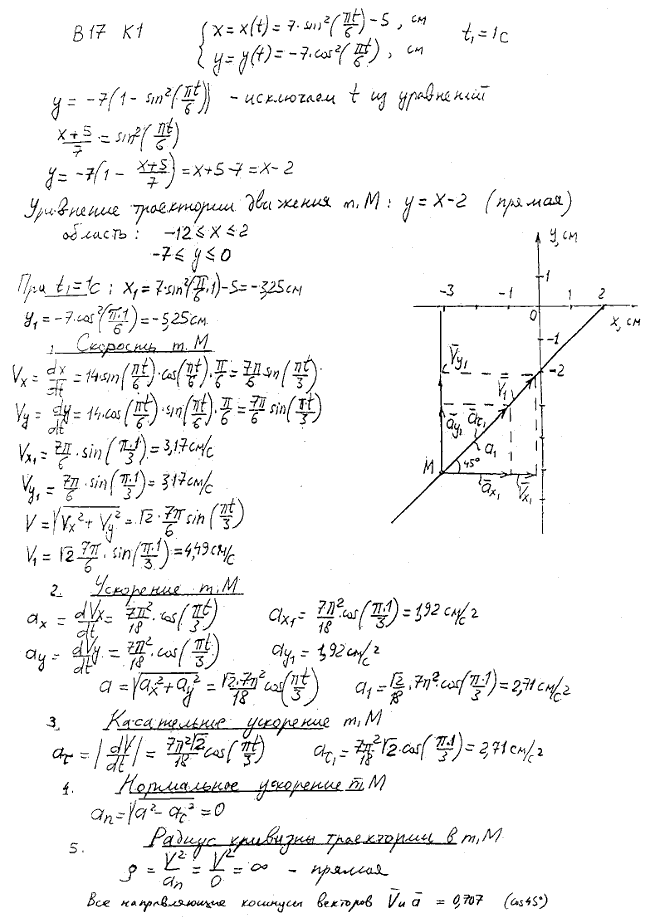 В17 К1 { x = x(t) = 7·sin²(πt/6) − 5, см
y = y(t) = −7·cos²(πt/6), см t₁=1c
y = −7(1 − sin²(πt/6)) - исключаем t из уравнений
(x+5)/7 = sin²(πt/6)
y = −7(1 − (x+5)/7) = x+5−7 = x−2
Уравнение траектории движения т. М: y = x−2 (прямая)
область: −12 ≤ x ≤ 2
−7 ≤ y ≤ 0
При t₁=1c: x₁ = 7·sin²(π/6·1)−5 = −3,25 см
y₁ = −7·cos²(π·1/6) = −5,25 см
1. Скорость т. М
Vx = dx/dt = 14·sin(πt/6)·cos(πt/6)·π/6 = 7π/6 sin(πt/3)
Vy = dy/dt = 14·cos(πt/6)·sin(πt/6)·π/6 = 7π/6 sin(πt/3)
Vx₁ = 7π/6·sin(π·1/3) = 3,17 см/c
Vy₁ = 7π/6·sin(π·1/3) = 3,17 см/c
V = √(Vx² + Vy²) = √2·7π/6 sin(πt/3)
V₁ = √2 7π/6·sin(π·1/3) = 4,49 см/c
y, см
1
-3
-1
0
1
2
x, см
-1
-2
V̄y₁
V̄₁
āy₁
āτ₁
a₁
М
45°
āx₁
V̄x₁
2. Ускорение т. М
ax = dVx/dt = 7π²/18·cos(πt/3) ax₁ = 7π²/18·cos(π·1/3) = 1,92 см/c²
ay = dVy/dt = 7π²/18·cos(πt/3) ay₁ = 1,92 см/c²
a = √(ax² + ay²) = √2·7π²/18 cos(πt/3) a₁ = √2/18·7π²·cos(π·1/3) = 2,71 см/c²
3. Касательное ускорение т. М
aτ = |dV/dt| = 7π²√2/18 cos(πt/3) aτ₁ = 7π²/18 √2·cos(π·1/3) = 2,71 см/c²
4. Нормальное ускорение т. М
an = √(a² − aτ²) = 0
5. Радиус кривизны траектории в т. М
ρ = V²/an = V²/0 = ∞ - прямая
Все направляющие косинусы векторов V̄ и ā = 0,707 (cos45°)